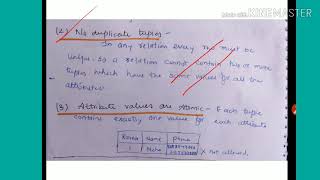 Made with KINEMASTER
(2) No duplicate tuples -
In any relation every row must be
unique. So a relation cannot contain two or more
tuples which have the same values for all the
attributes.
(3) Attribute values are Atomic - Each tuple
contains exactly one value for each attribute
Rollno Name Phone
1 Neha
X not allowed.